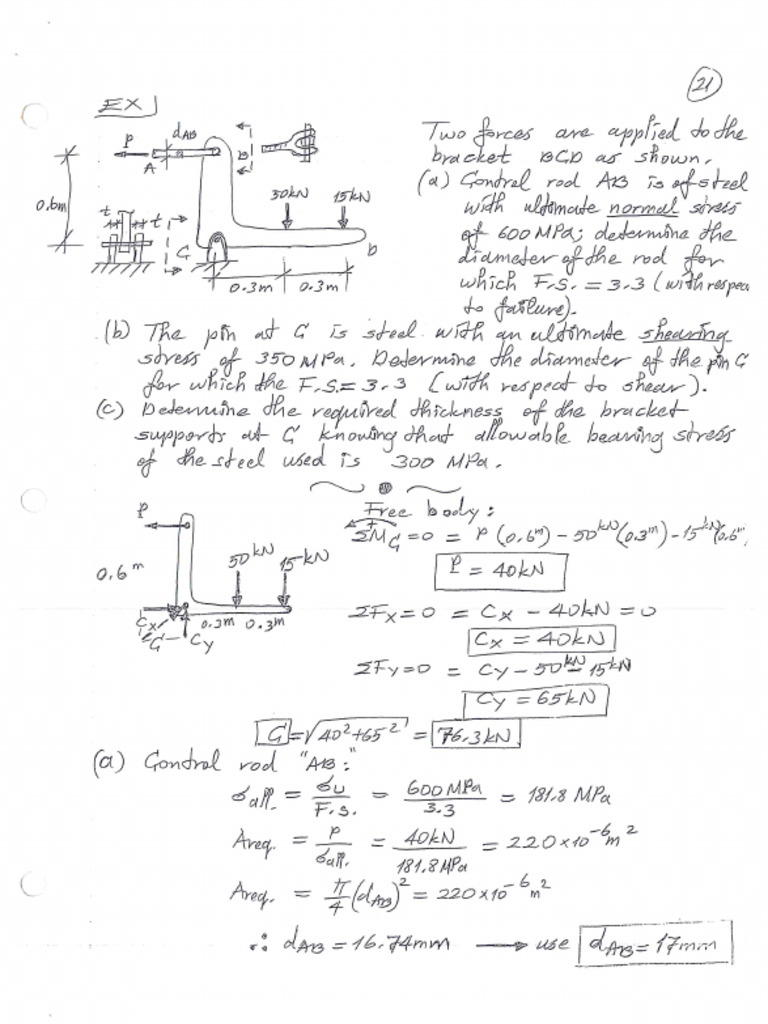 21
EX
Two forces are applied to the
bracket BCD as shown.
(a) Control rod AB is of steel
with ultimate normal stress
of 600 MPa; determine the
diameter of the rod for
which F.S. = 3.3 (with respect
to failure).
P
dAB
A
B
0.6m
t
t
C
30kN
15kN
D
0.3m
0.3m
(b) The pin at C is steel with an ultimate shearing
stress of 350 MPa. Determine the diameter of the pin C
for which the F.S. = 3.3 (with respect to shear).
(c) Determine the required thickness of the bracket
supports at C knowing that allowable bearing stress
of the steel used is 300 MPa.
Free body:
ΣMC = 0 = P(0.6m) - 50kN(0.3m) - 15kN(0.6m
P = 40kN
P
0.6m
50kN
15kN
Cx
C
Cy
0.3m
0.3m
ΣFx = 0 = Cx - 40kN = 0
Cx = 40kN
ΣFy = 0 = Cy - 50kN - 15kN
Cy = 65kN
C = √40²+65² = 76.3kN
(a) Control rod "AB:"
σall. = σU/F.S. = 600MPa/3.3 = 181.8 MPa
Areq. = P/σall. = 40kN/181.8MPa = 220×10⁻⁶m²
Areq. = π/4(dAB)² = 220×10⁻⁶m²
∴ dAB = 16.74mm → use dAB = 17mm